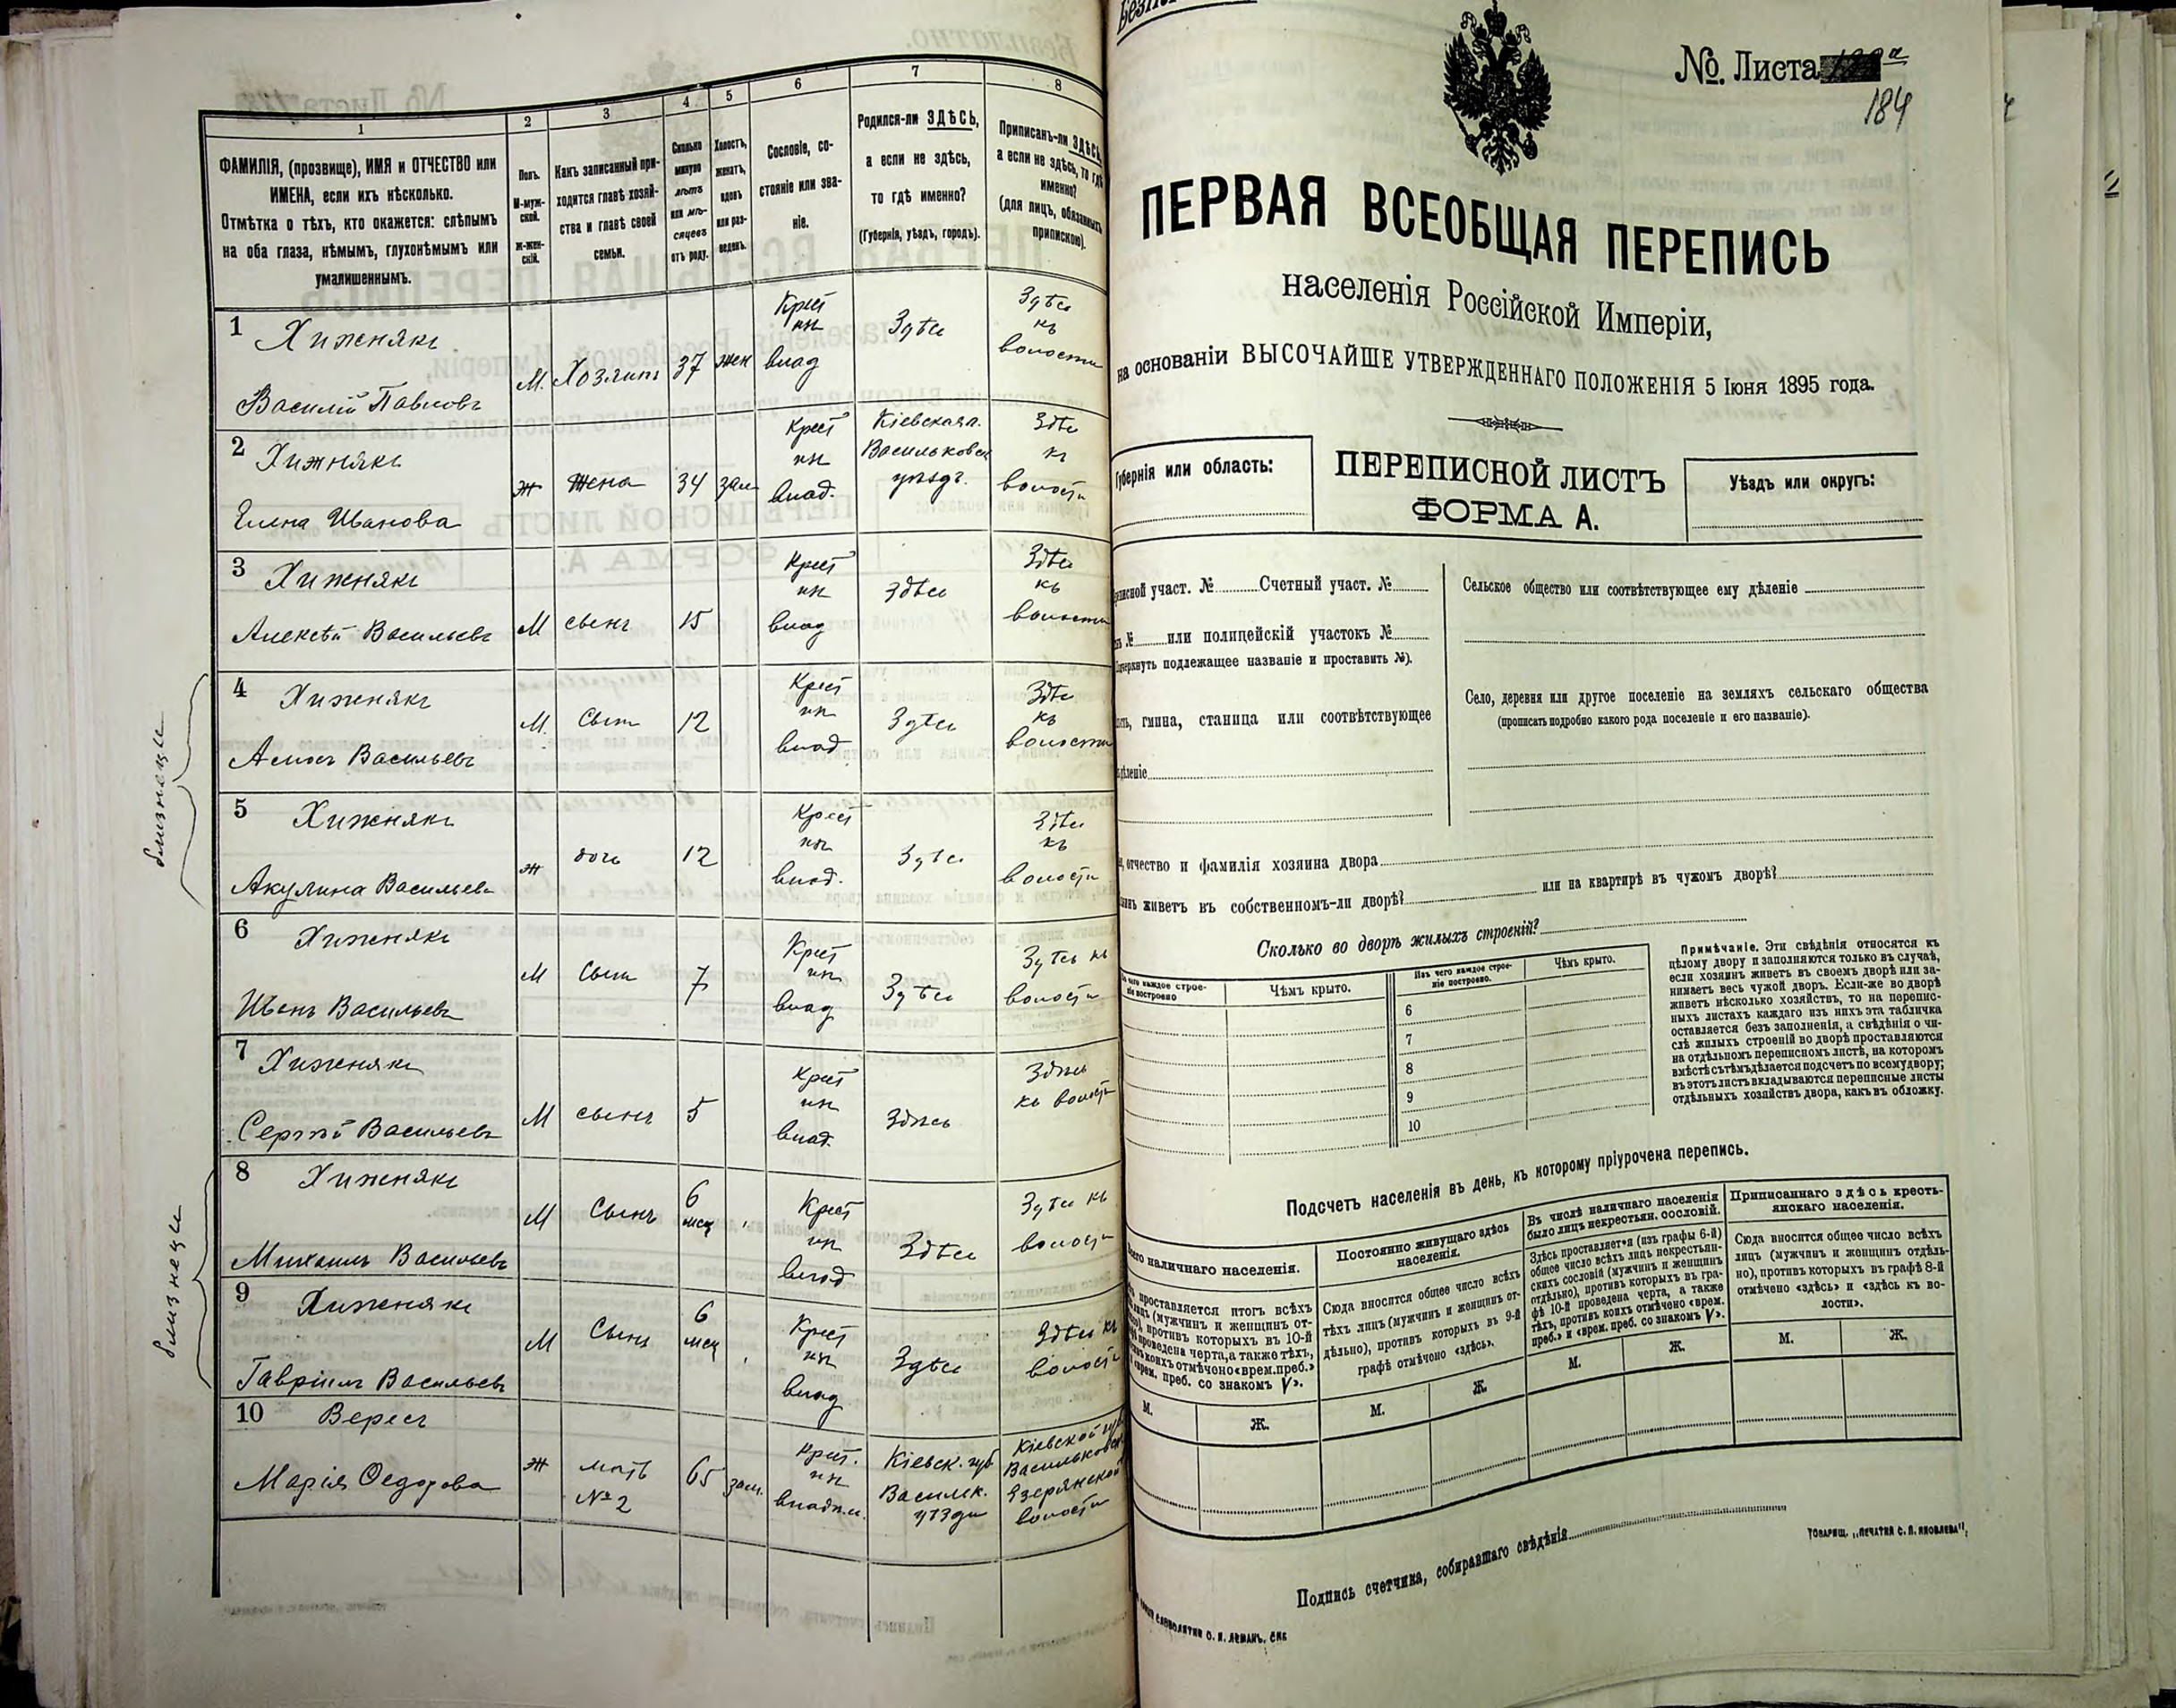 1
2
3
4
5
6
7
8
ФАМИЛІЯ, (прозвище), ИМЯ и ОТЧЕСТВО или
ИМЕНА, если ихъ нѣсколько.
Отмѣтка о тѣхъ, кто окажется: слѣпымъ
на оба глаза, нѣмымъ, глухонѣмымъ или
умалишеннымъ.
Полъ.
М-муж-
ской.
ж-жен-
скій.
Какъ записанный при-
ходится главѣ хозяй-
ства и главѣ своей
семьи.
Сколько
минуло
лѣтъ
или мѣ-
сяцевъ
отъ роду.
Холостъ,
женатъ,
вдовъ
или раз-
веденъ.
Сословіе, со-
стояніе или зва-
ніе.
Родился-ли ЗДѢСЬ,
а если не здѣсь,
то гдѣ именно?
(Губернія, уѣздъ, городъ).
Приписанъ-ли ЗДѢСЬ,
а если не здѣсь, то гдѣ
именно?
(для лицъ, обязанныхъ
припискою).
1
Хижнякъ
Василій Павловъ
М.
Хозяинъ
37
жен
Крест
ин
влад
Здѣсь
Здѣсь
къ
волости
2
Хижнякъ
Елена Иванова
ж
жена
34
зам
Крест
ин
влад.
Кіевская г.
Васильковск
уѣздъ.
Здѣсь
къ
волости
3
Хижнякъ
Алексѣй Васильевъ
М
сынъ
15
Крест
ин
влад
Здѣсь
Здѣсь
къ
волости
4
Хижнякъ
Амосъ Васильевъ
М.
Сынъ
12
Крест
ин
влад
Здѣсь
Здѣсь
къ
волости
близнецы
5
Хижнякъ
Акулина Васильев
ж
дочь
12
Крест
ин
влад.
Здѣсь
Здѣсь
къ
волости
6
Хижнякъ
Иванъ Васильевъ
М
Сынъ
7
Крест
ин
влад
Здѣсь
Здѣсь къ
волости
7
Хижнякъ
Сергѣй Васильевъ
М
сынъ
5
Крест
ин
влад.
Здѣсь
Здѣсь
къ волости
8
Хижнякъ
Михаилъ Васильевъ
М
Сынъ
6
мсц
Крест
ин
влад
Здѣсь
Здѣсь къ
волости
близнецы
9
Хижнякъ
Гавріилъ Васильевъ
М
Сынъ
6
мсц
Крест
ин
влад
Здѣсь
Здѣсь къ
волости
10
Вересъ
Марія Федорова
ж
мать
№ 2
65
зам.
Крест.
ин
владѣл.
Кіевск. губ
Васильк.
уѣзда
Кіевской губ.
Васильковск
Езерянской
волости
№. Листа
184
ПЕРВАЯ ВСЕОБЩАЯ ПЕРЕПИСЬ
населенія Россійской Имперіи,
на основаніи ВЫСОЧАЙШЕ УТВЕРЖДЕННАГО ПОЛОЖЕНІЯ 5 Іюня 1895 года.
Губернія или область:
ПЕРЕПИСНОЙ ЛИСТЪ
ФОРМА А.
Уѣздъ или округъ:
писной участ. № Счетный участ. №
№ или полицейскій участокъ №
черкнуть подлежащее названіе и проставить №).
гмина, станица или соотвѣтствующее
дѣленіе
Сельское общество или соотвѣтствующее ему дѣленіе
Село, деревня или другое поселеніе на земляхъ сельскаго общества
(прописать подробно какого рода поселеніе и его названіе).
отчество и фамилія хозяина двора
живетъ въ собственномъ-ли дворѣ? или на квартирѣ въ чужомъ дворѣ?
Сколько во дворѣ жилыхъ строеній?
чего каждое строе-
ніе построено
Чѣмъ крыто.
Изъ чего каждое строе-
ніе построено.
Чѣмъ крыто.
6
7
8
9
10
Примѣчаніе. Эти свѣдѣнія относятся къ
цѣлому двору и заполняются только въ случаѣ,
если хозяинъ живетъ въ своемъ дворѣ или за-
нимаетъ весь чужой дворъ. Если-же во дворѣ
живетъ нѣсколько хозяйствъ, то на перепис-
ныхъ листахъ каждаго изъ нихъ эта табличка
оставляется безъ заполненія, а свѣдѣнія о чи-
слѣ жилыхъ строеній во дворѣ проставляются
на отдѣльномъ переписномъ листѣ, на которомъ
вмѣстѣ съ тѣмъ дѣлается подсчетъ по всему двору;
въ этотъ листъ вкладываются переписные листы
отдѣльныхъ хозяйствъ двора, какъ въ обложку.
Подсчетъ населенія въ день, къ которому пріурочена перепись.
наличнаго населенія.
проставляется итогъ всѣхъ
лицъ (мужчинъ и женщинъ от-
противъ которыхъ въ 10-й
проведена черта, а также тѣхъ,
коихъ отмѣчено «врем. преб.»
«врем. преб. со знакомъ V».
М.
Ж.
Постоянно живущаго здѣсь
населенія.
Сюда вносится общее число всѣхъ
тѣхъ лицъ (мужчинъ и женщинъ от-
дѣльно), противъ которыхъ въ 9-й
графѣ отмѣчено «здѣсь».
М.
Ж.
Въ числѣ наличнаго населенія
было лицъ некрестьян. сословій.
Здѣсь проставляется (изъ графы 6-й)
общее число всѣхъ лицъ некрестьян-
скихъ сословій (мужчинъ и женщинъ
отдѣльно), противъ которыхъ въ гра-
фѣ 10-й проведена черта, а также
тѣхъ, противъ коихъ отмѣчено «врем.
преб.» и «врем. преб. со знакомъ V».
М.
Ж.
Приписаннаго здѣсь кресть-
янскаго населенія.
Сюда вносится общее число всѣхъ
лицъ (мужчинъ и женщинъ отдѣль-
но), противъ которыхъ въ графѣ 8-й
отмѣчено «здѣсь» и «здѣсь къ во-
лости».
М.
Ж.
Подпись счетчика, собиравшаго свѣдѣнія
ТОВАРИЩ. „ПЕЧАТНЯ С. П. ЯКОВЛЕВА".
СЛОВОЛИТНИ О. И. ЛЕМАНЪ. СПБ